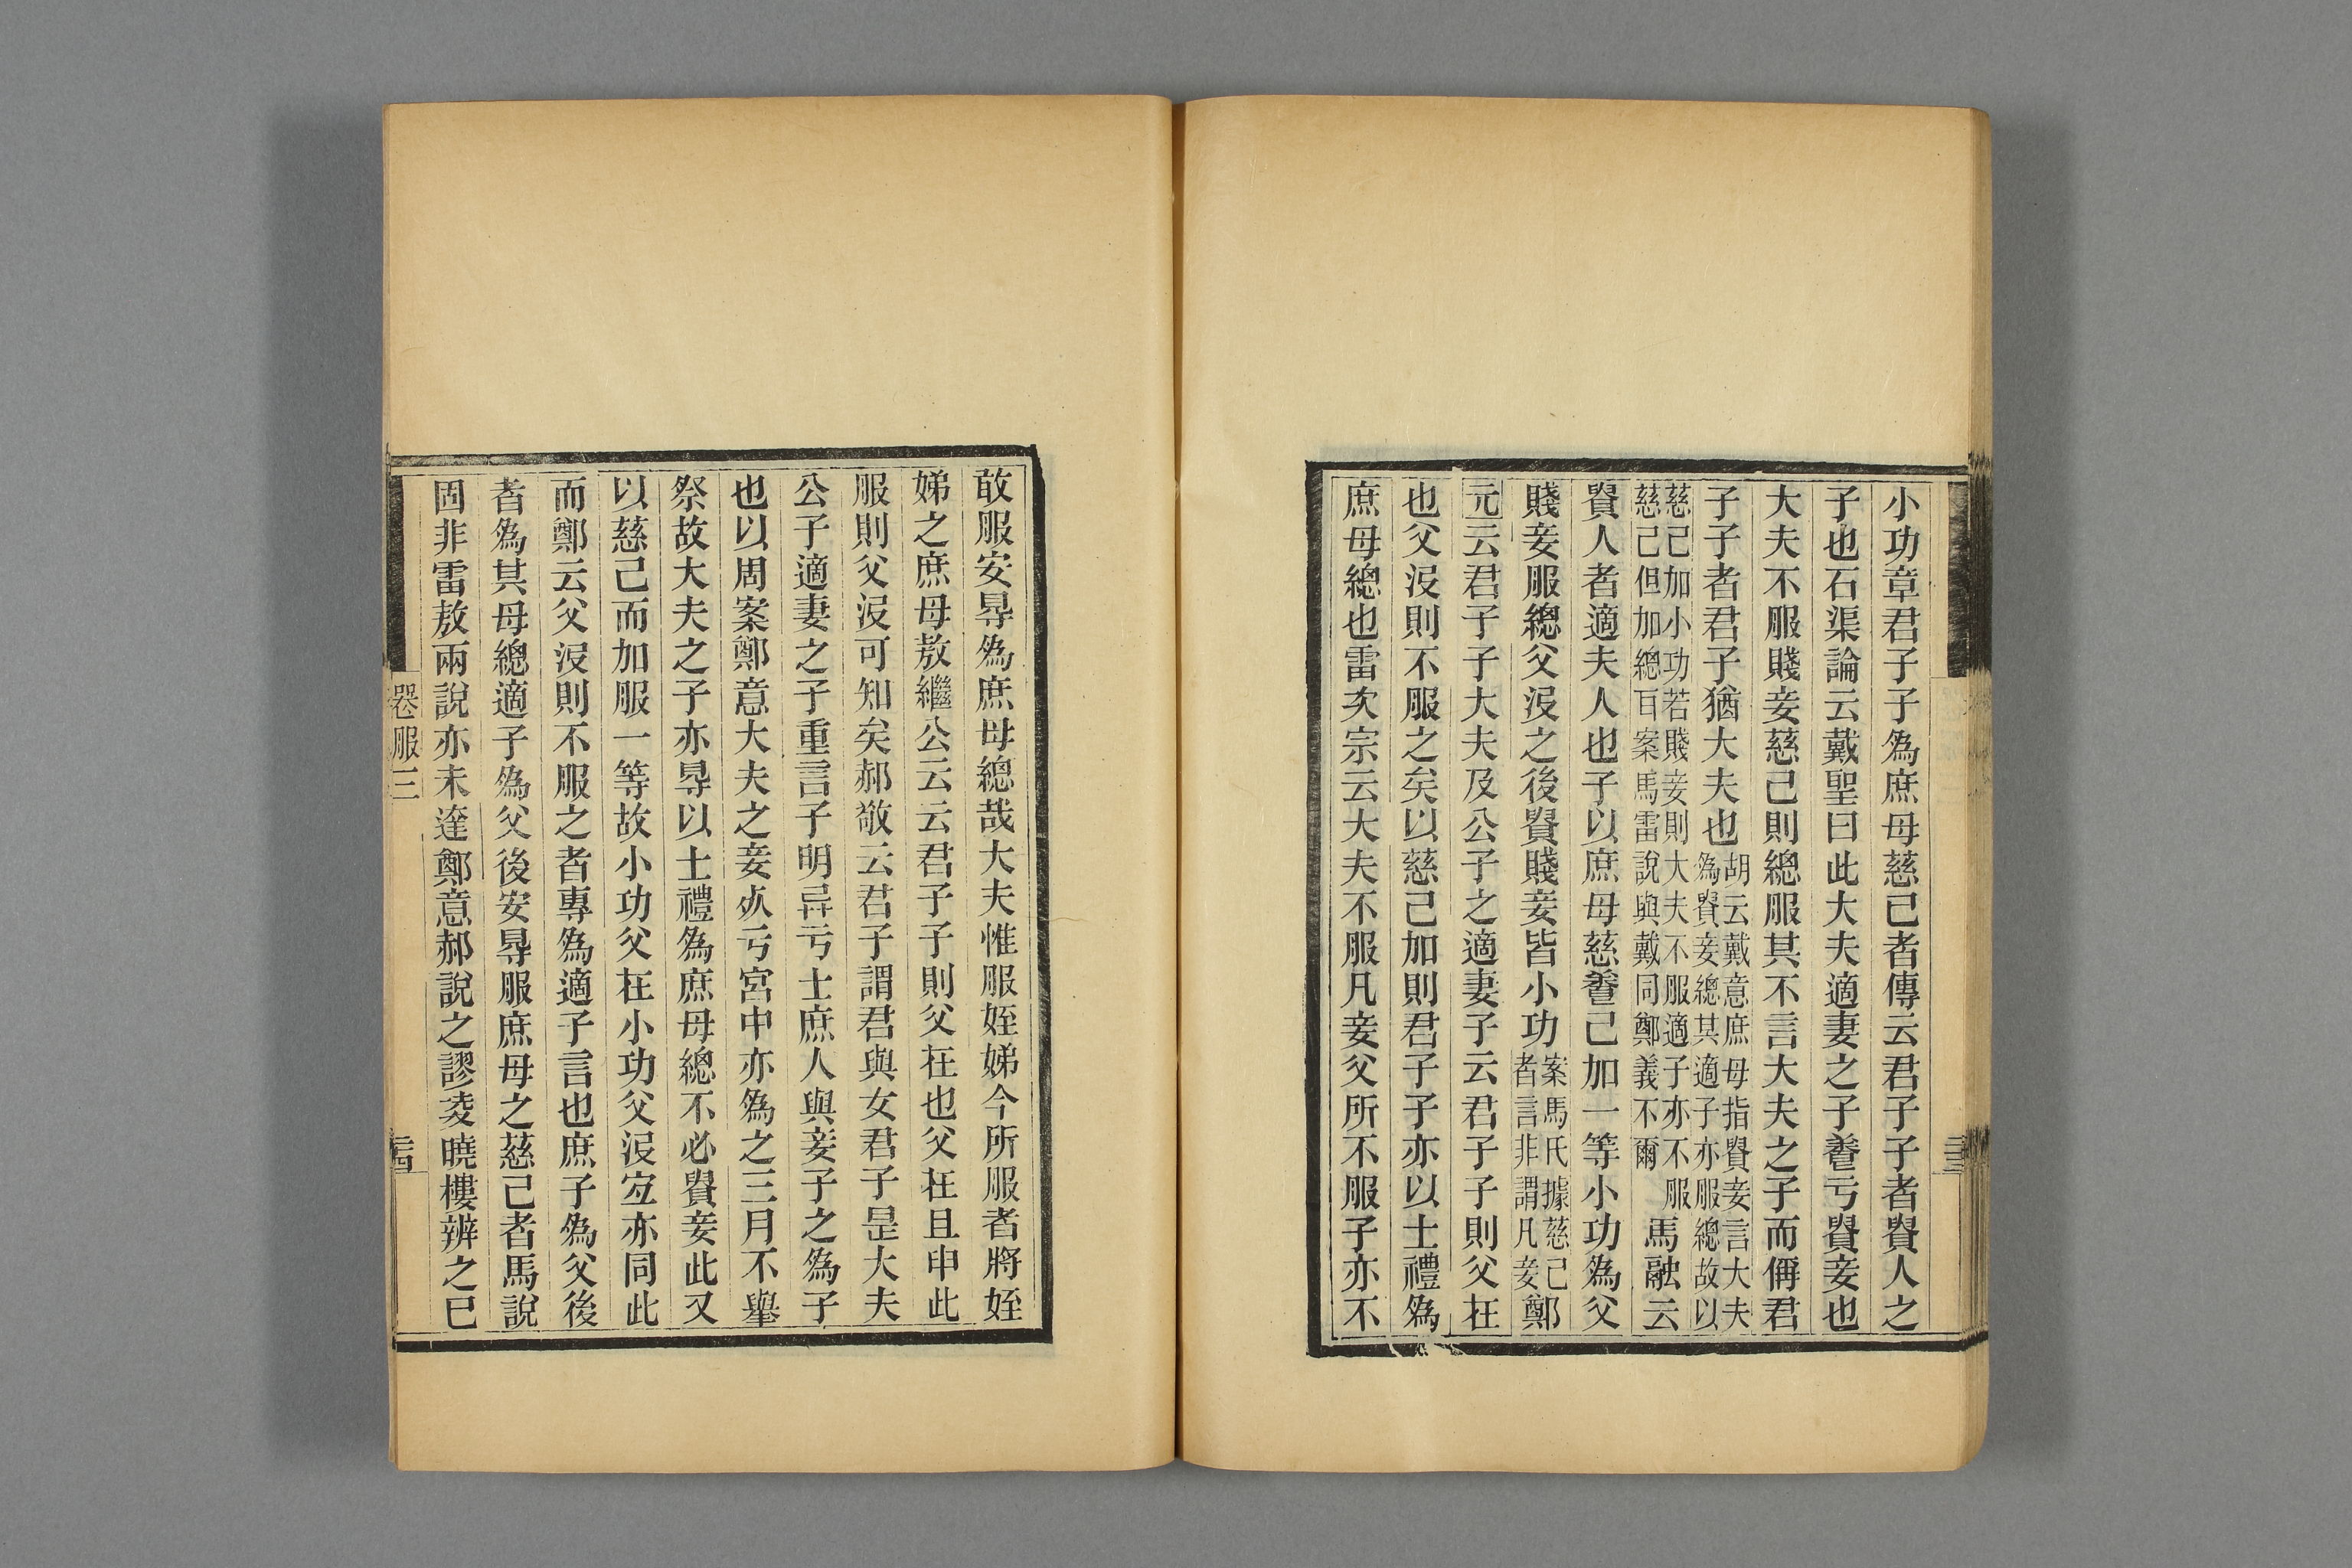 小功章君子子爲庶母慈己者傳云君子子者貴人之
子也石渠論云戴聖曰此大夫適妻之子養亏貴妾也
大夫不服賤妾慈己則緦服其不言大夫之子而偁君
子子者君子猶大夫也胡云戴意庶母指貴妾言大夫
爲貴妾緦其適子亦服緦故以
慈己加小功若賤妾則大夫不服適子亦不服
慈己但加緦百案馬雷說與戴同鄭義不爾馬融云
貴人者適夫人也子以庶母慈養己加一等小功爲父
賤妾服緦父沒之後貴賤妾皆小功案馬氏據慈己鄭
者言非謂凡妾
元云君子子大夫及公子之適妻子云君子子則父在
也父沒則不服之矣以慈己加則君子子亦以士禮爲
庶母緦也雷次宗云大夫不服凡妾父所不服子亦不
敢服安㝵爲庶母緦哉大夫惟服姪娣今所服者將姪
娣之庶母敖繼公云云君子子則父在也父在且申此
服則父沒可知矣郝敬云君子謂君與女君子是大夫
公子適妻之子重言子明异亏士庶人與妾子之爲子
也以周案鄭意大夫之妾𣦸亏宮中亦爲之三月不舉
祭故大夫之子亦㝵以士禮爲庶母緦不必貴妾此又
以慈己而加服一等故小功父在小功父沒宜亦同此
而鄭云父沒則不服之者專爲適子言也庶子爲父後
者爲其母緦適子爲父後安㝵服庶母之慈己者馬說
固非雷敖兩說亦未達鄭意郝說之謬淩曉樓辨之已
喪服三
二十四
二十三